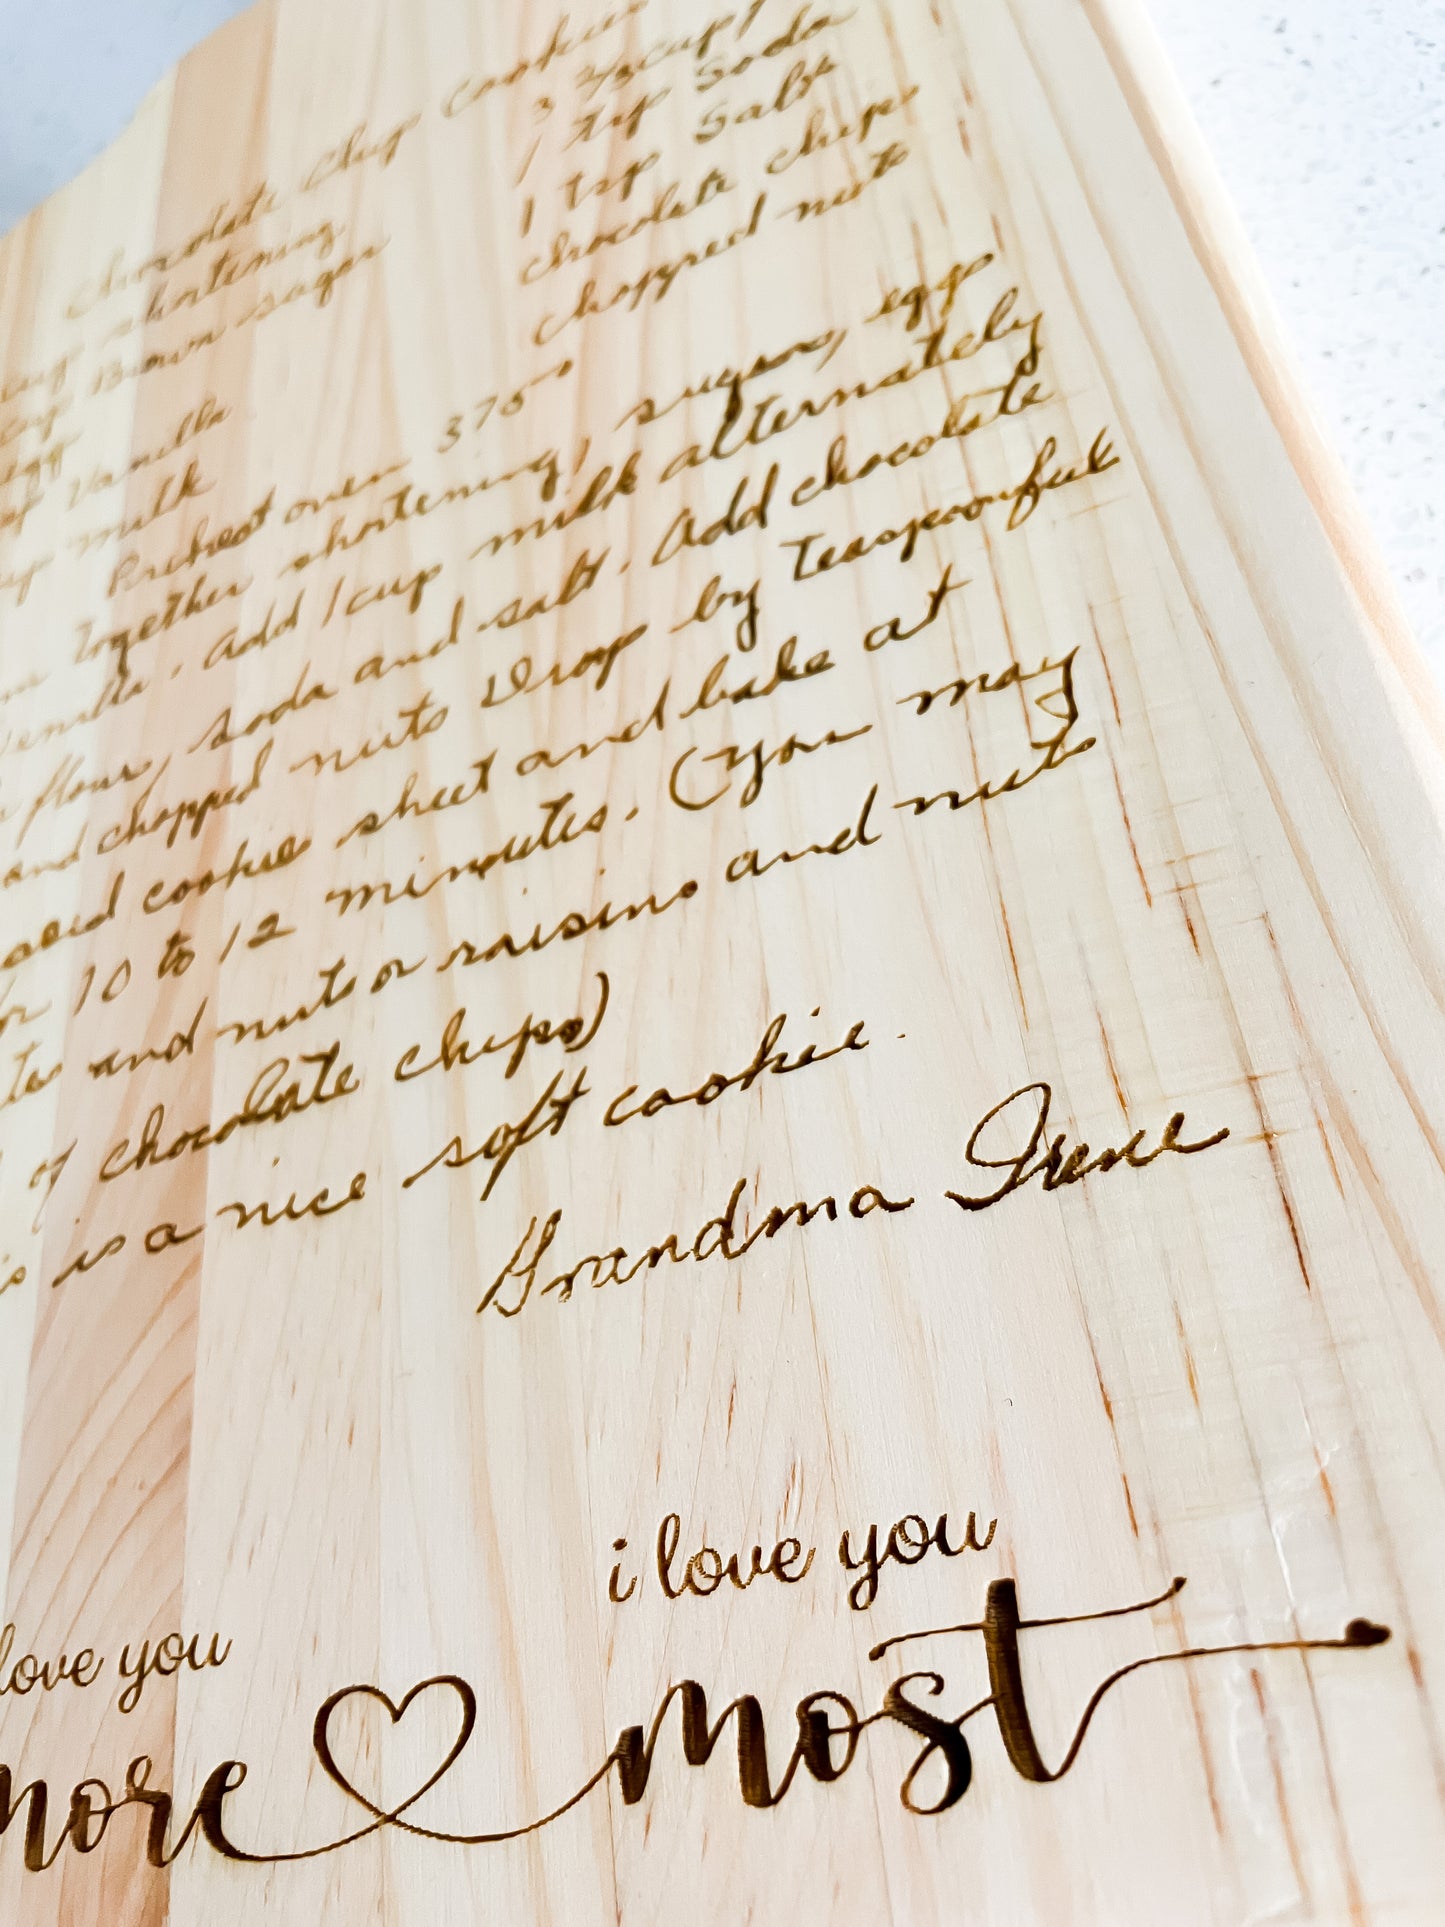 Chocolate Chip Cookies
cup shortening 3 2/3 cup
cup Brown sugar 1 tsp Soda
egg 1 tsp Salt
Vanilla chocolate chips
milk chopped nuts
Preheat oven 375°
Together shortening, sugar, eggs
Vanilla. Add 1 cup milk alternately
flour, soda and salt. Add chocolate
and chopped nuts Drop by Teaspoonful
cookie sheet and bake at
10 to 12 minutes. (You may
and nuts or raisins and nuts
of chocolate chips)
is a nice soft cookie.
Grandma Irene
love you
more
i love you
most